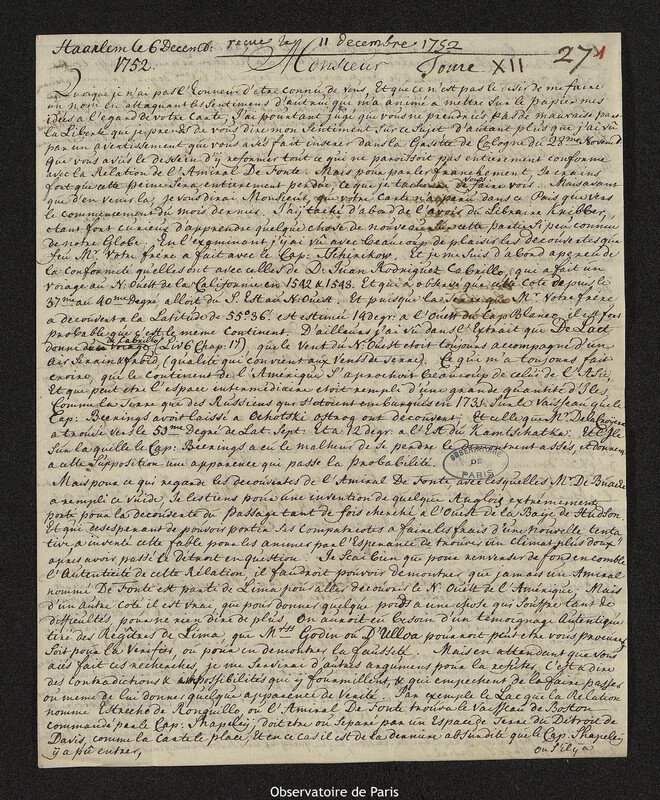 Haarlem le 6 Decemb: recue le 11 decembre 1752
1752. Monsieur Tome XII 27
Quoique je n'ai pas l'honneur d'etre connu de vous, Et que ce n'est pas le desir de me faire
un nom en attaquant les Sentimens d'autrui qui m'a animé a mettre Sur le papier mes
idées a l'egard de votre Carte, J'ai pourtant jugé que vous ne prendriés pas de mauvaise part
la Liberté que je prends de vous dire mon Sentiment Sur ce Sujet d'autant plus que j'ai vû
par un avertissement que vous avés fait inserer dans la Gazette de Cologne du 23me
que vous avés le dessein d'y reformer tout ce qui ne paroissoit pas entierement conforme
avec la Relation de l'Amiral De Fonte. Mais pour parler franchement, Je crains
fort que cette peine Sera entierement perdue, ce que je tacherai de vous faire voir. Mais avant
que d'en venir la, je vous dirai Monsieur, que votre Carte n'a paru dans ce Pais que vers
le commencement du mois dernier. J'ay taché d'abord de l'avoir du Libraire
etant fort curieux d'apprendre quelque chose de nouveau Sur cette partie Si peu connue
de notre Globe. En l'examinant j'y ai vû avec beaucoup de plaisir les decouvertes que
feu Mr. Votre frere a fait avec le Cap: Tchirikow. Et je me Suis d'abord aperçu de
la conformité qu'elles ont avec celles de Dn Juan Rodriguez Cabrillo, qui a fait un
voyage au N: Ouest de la Californie en 1542 & 1543. Et qui a observé que cette Cote depuis le
37me au 40me Degré alloit du S. Est au N. Ouest. Et puisque la Terre que Mr. Votre frere
a decouvert a la Latitude de 55°.36'. est estimée 14 degr. a l'Ouest du Cap Blanco, il est fort
probable que c'est le même Continent. D'ailleurs j'ai vû dans l'Extrait que De Laet
donne de Cabrillo (Liv: 6 Chap. 17), que le Vent du N. Ouest etoit toujours accompagné d'un
air Serain & froid (qualité qui convient aux Vents de Terre). Ce qui m'a toujours fait
croire, que le Continent de l'Amérique S'aprochoit beaucoup de celui de l'Asie,
Et que peut etre l'espace intermédiaire etoit rempli d'une grande quantité d'Iles,
Comme la Terre que des Russiens qui S'etoient embarqués en 1731 Sur le Vaisseau que le
Cap: Beerings avoit laissé a Ochotski ostrog ont decouvert; Et celle que Mr. De la Croyere
a trouvé vers le 53me Degré de Lat: Sept. Et a 12 degr. a l'Est du Kamtschatka: Et l'Ile
Sur laquelle le Cap: Beerings a eu le malheur de se perdre le demontrent assés, et donnent
a cette Supposition une apparence qui passe la Probabilité.
OBSERVATOIRE DE PARIS
Mais pour ce qui regarde les decouvertes de l'Amiral De Fonte avec lesquelles Mr. De Buache
a rempli ce vuide, Je les tiens pour une invention de quelque Anglois extrêmement
porté pour la decouverte du passage tant de fois cherché a l'Ouest de la Baije de Hudson.
Et qui desesperant de pouvoir porter Ses Compatriotes a faire les frais d'une Nouvelle tenta-
tive, a inventé cette fable pour les animer par l'Esperance de trouver un Climat plus doux
apres avoir passé le Détroit en question. Je Scai bien que pour renverser de fond en comble
l'Autenticité de cette Rélation, il faudroit pouvoir démontrer que jamais un Amiral
nommé De Fonte est parti de Lima pour aller decouvrir le N: Ouest de l'Amérique. Mais
d'un autre coté il est vrai, que pour donner quelque poids a une chose qui Souffre tant de
difficultés, pour ne rien dire de plus, On auroit eu besoin d'un témoignage Autentique
tiré des Régitres de Lima, que Mrs. Godin ou D'Ulloa pourroit peut etre vous procurer
Soit pour la Verifier, ou pour en demontrer la fausseté. Mais en attendant que vous
aiés fait ces recherches, je me Servirai d'autres argumens pour la refuter, C'est a dire
des Contradictions & impossibilités qui y fourmillent, & qui empechent de la faire passer
ou même de lui donner quelque apparence de Verité. Par exemple le Lac que la Relation
nomme Estrecho de Ronquillo, ou l'Amiral De Fonte trouva le Vaisseau de Boston
commandé par le Cap: Shapeleij, doit etre ou Separé par un Espace de Terre du Détroit de
Davis, comme la Carte le place, Et en ce cas il est de la derniere absurdité que le Cap. Shapeleij
ij a pû entrer, ou s'il y a
Observatoire de Paris